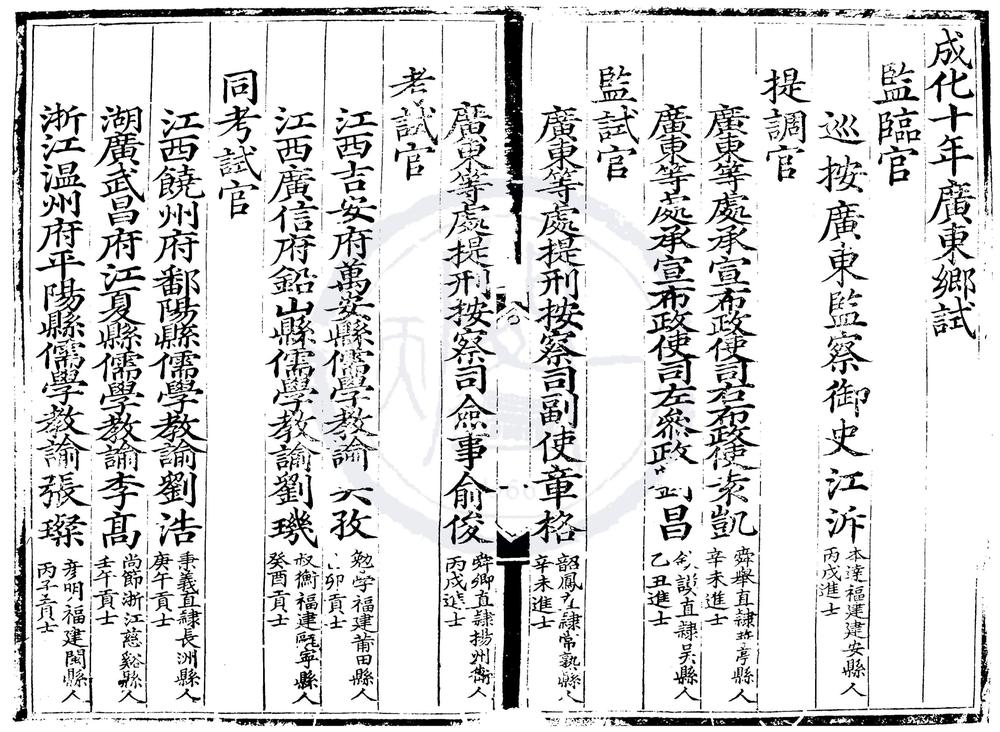 成化十年廣東鄉試
監臨官
巡按廣東監察御史江泝
本達福建建安縣人
丙戌進士
提調官
廣東等處承宣布政使司右布政使 凱
舜舉直隷 亭縣人
辛未進士
廣東等處承宣布政使司左叅政 昌
謨直隷吳縣人
乙丑進士
監試官
廣東等處提刑按察司副使章格
韶鳳直隷常熟縣人
辛未進士
廣東等處提刑按察司僉事俞俊
舜卿直隷揚州衛人
丙戌進士
考試官
江西吉安府萬安縣儒學教諭 孜
勉學福建莆田縣人
卯貢士
江西廣信府鉛山縣儒學教諭劉璣
叔衡福建甌寧縣人
癸酉貢士
同考試官
江西饒州府鄱陽縣儒學教諭劉浩
秉義直隷長洲縣人
庚午貢士
湖廣武昌府江夏縣儒學教諭李髙
尚節浙江慈谿縣人
壬午貢士
浙江温州府平陽縣儒學教諭張璨
彦明福建閩縣人
丙子貢士